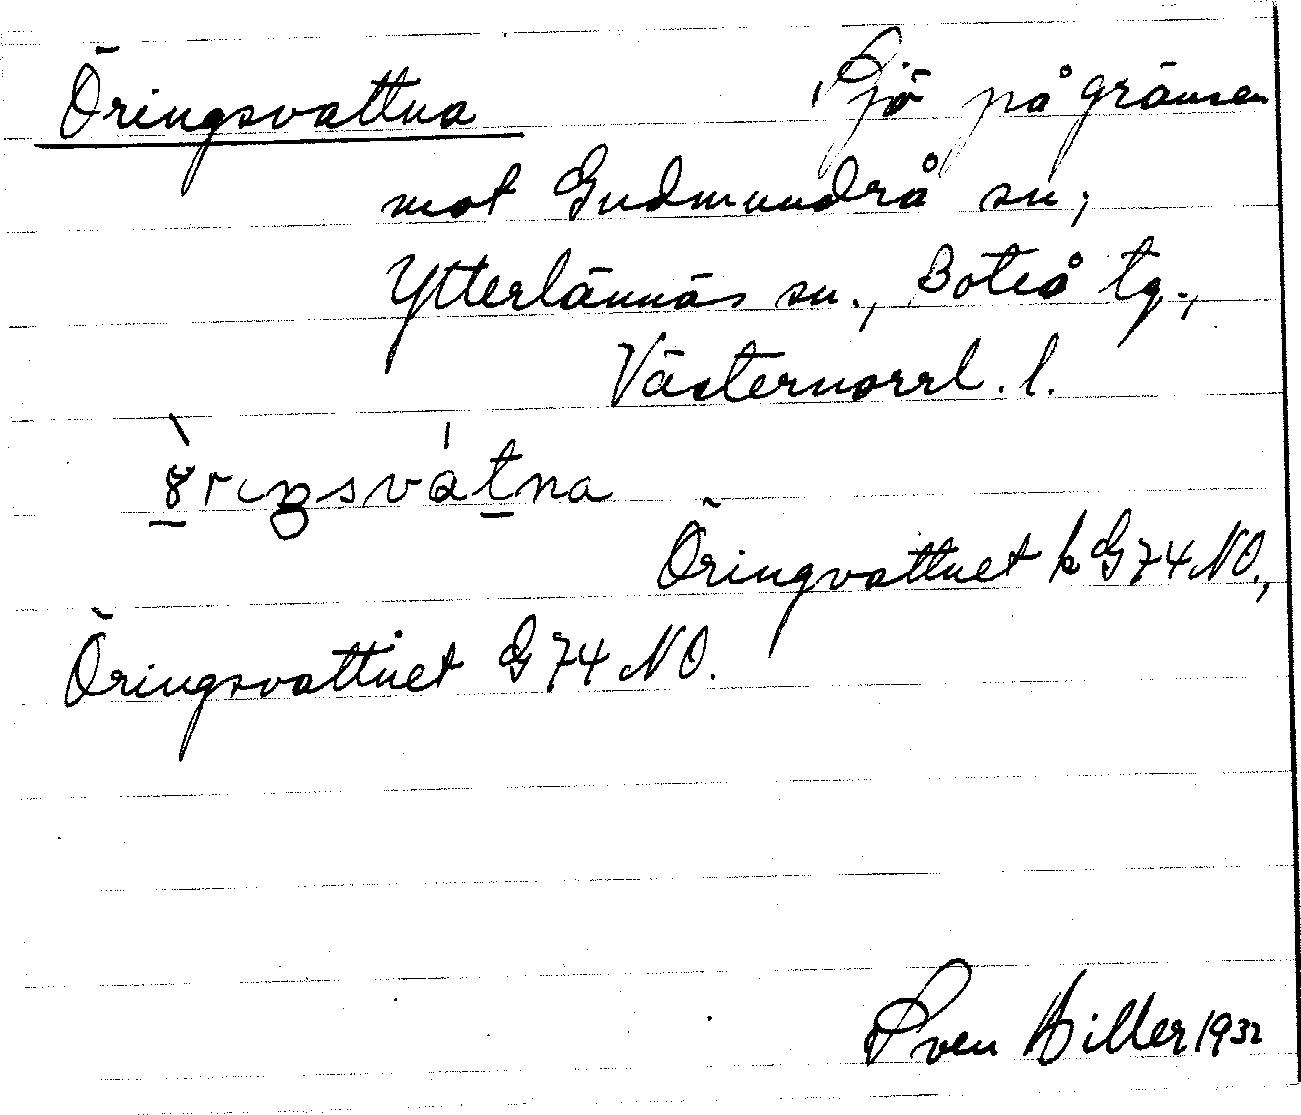 Öringsvattna Sjö på gränsen
mot Gudmundrå sn,
Ytterlännäs sn., Boteå tg.,
Västernorrl. l.
Öringvattnet k G 74 NO.,
Öringsvattnet G 74 NO.
Sven Hiller 1932